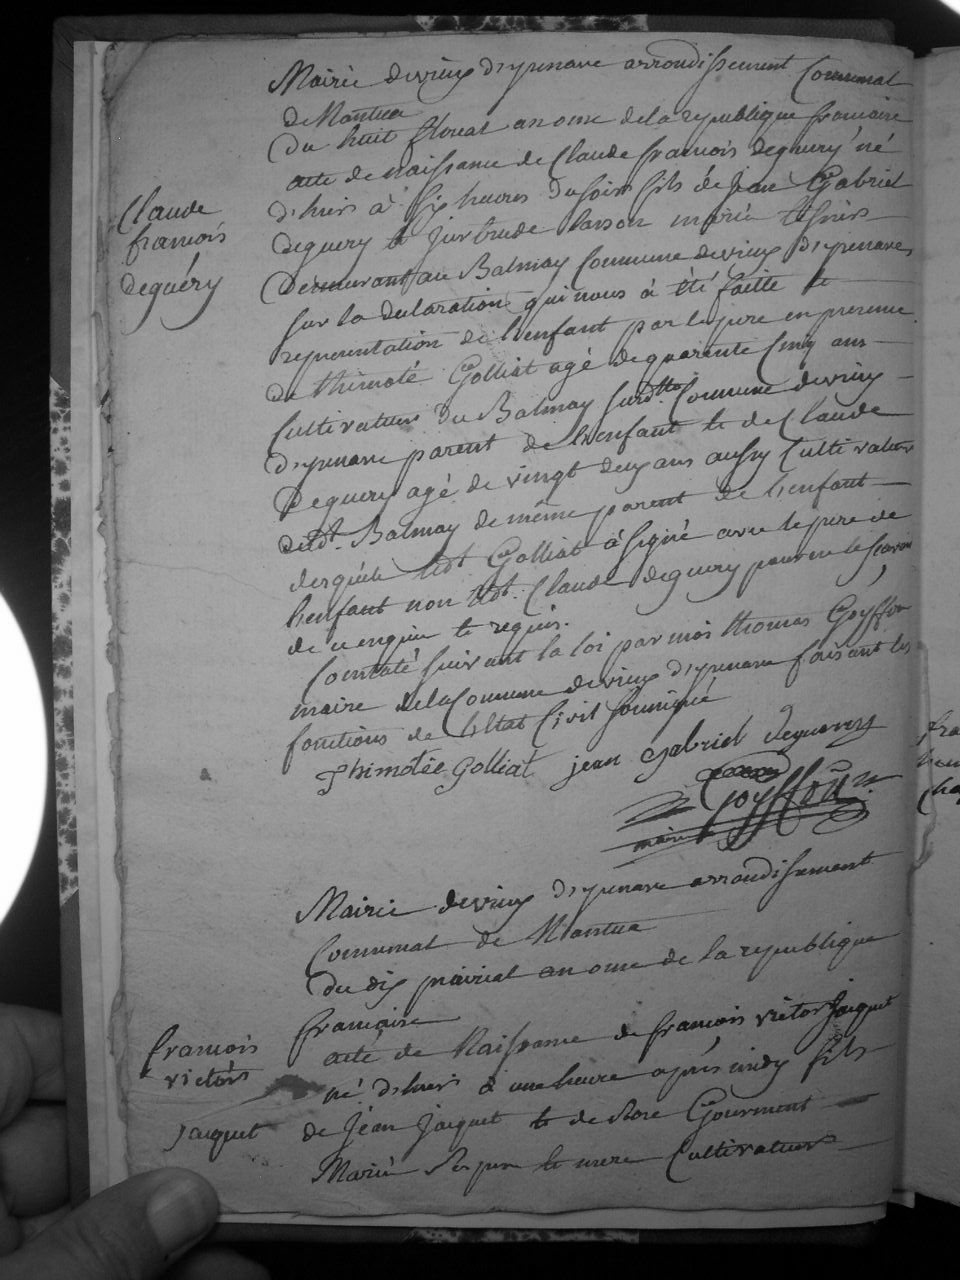 Mairie devieux d'yzenave arrondissement Communal
de Nantua
Du huit floreal an onze de la republique francaise
acte de naissance de Claude francois deguery né
d'hier à six heures du soir fils de Jean Gabriel
deguery et Jertrude sasson mariés
Demeurant au Balmay Commune devieux d'yzenave
sur la declaration qui nous à été faitte et
representation de l'enfant par le pere en presence
de thimoté Golliat agé de quarente cinq ans
Cultivateur du Balmay surdtte Commune devieux
d'yzenave parent de l'enfant et de Claude
Deguery agé de vingt deux ans aussy Cultivateur
dudt. Balmay de même parent de l'enfant
desquels ledt Golliat à signé avec le pere de
l'enfant non ledt. Claude deguery pour ne le scavoir
de ce enquis et requis.
Constaté suivant la loi par moi thomas Goyffon
maire de la Commune devieux d'yzenave faisant les
fonctions de l'etat Civil soussigné
Thimotée Golliat jean gabriel deguerry
Goyffon
maire
Claude
francois
deguéry
Mairie devieux d'yzenave arrondissement
Communal de Nantua
Du dix prairial an onze de la republique
francaise
acte de Naissance de francois victor Jacquet
né d'hier à une heure après midy fils
de Jean Jacquet et de Rose Gourmant
Mariés Ses pere et mere Cultivateurs
francois
victor
Jacquet